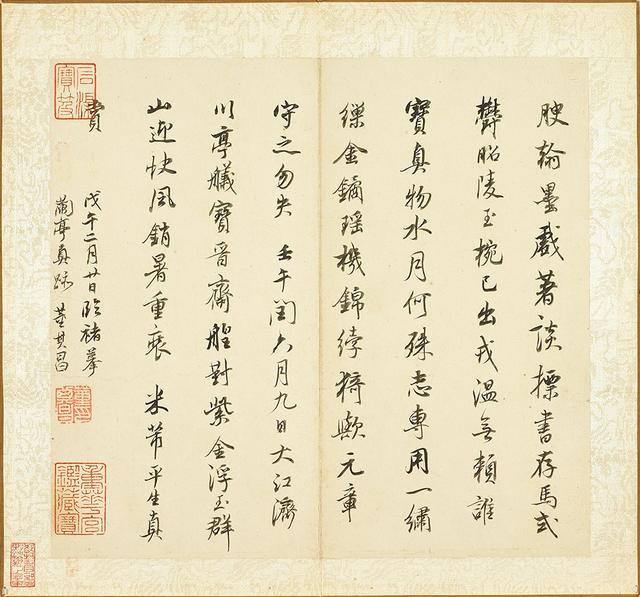 腴翰墨戲著談摽書存馬式
欝昭陵玉椀已出戎溫無賴誰
寶真物水月何殊志專用一繡
繅金鐍瑶機錦綍猗歟元章
守之勿失 壬午閏六月九日大江濟
川亭艤寶晉齋艎對紫金浮玉群
山迎快風銷暑重裝 米芾平生真
賞
戊午二月廿日臨褚摹
蘭亭真跡 董其昌